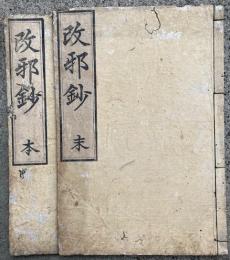 改邪鈔 末
改邪鈔 本